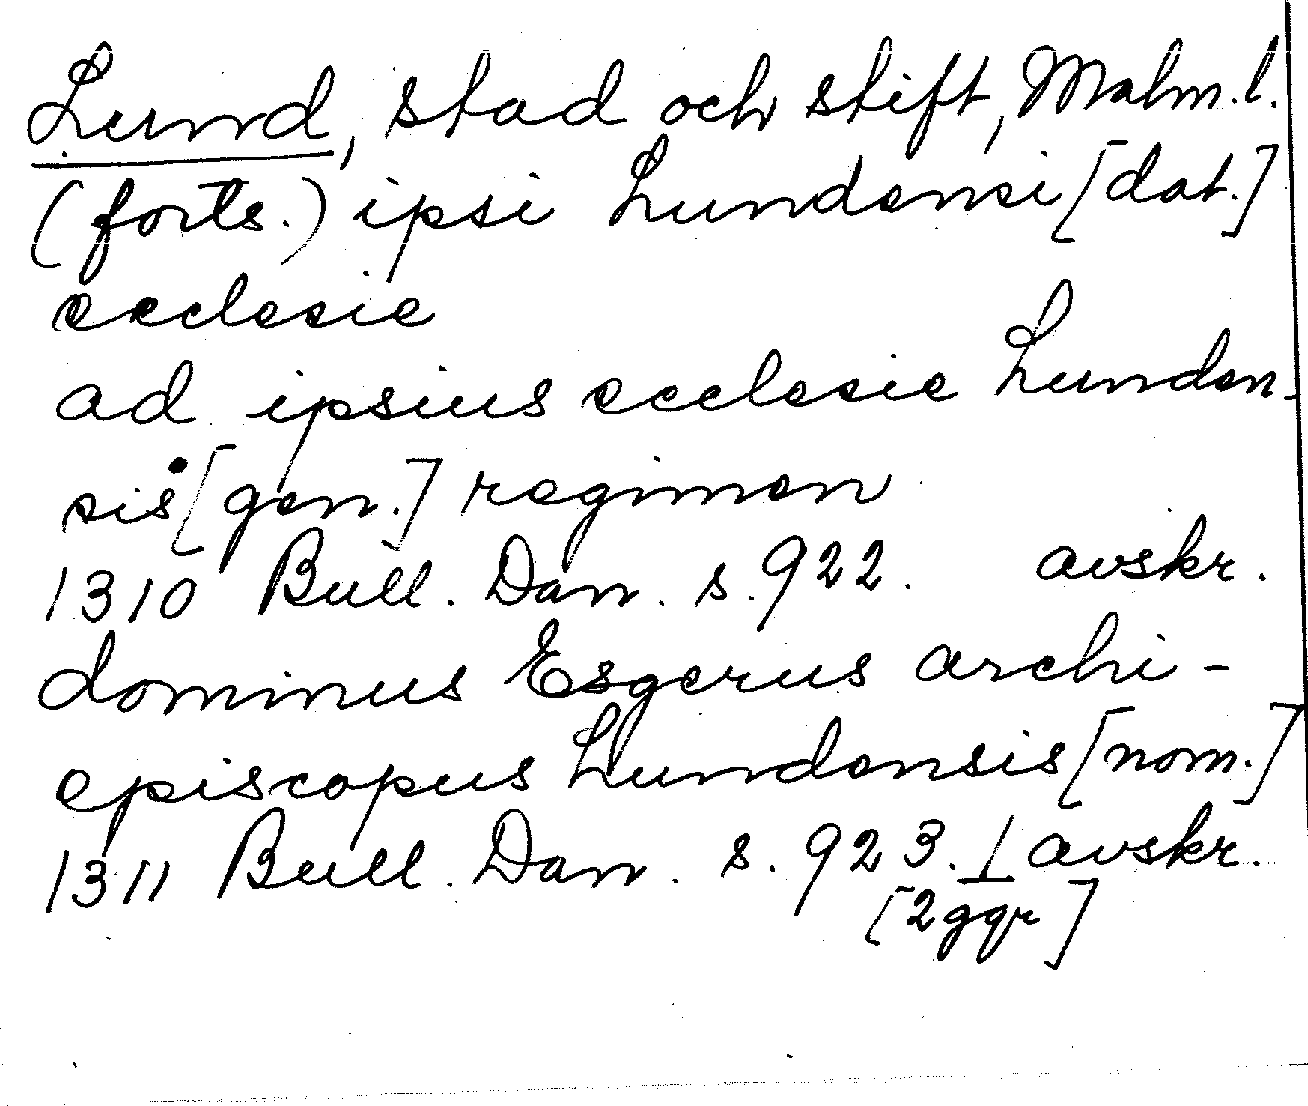 Lund, stad och stift, Malm.l.
(forts.) ipsi Lundensi [dat.]
ecclesie
ad ipsius ecclesie Lunden-
sis [gen.] regimen
1310 Bull. Dan. s. 922. avskr.
dominus Esgerus archi-
episcopus Lundensis [nom.]
1311 Bull. Dan. s. 923. avskr.
[2 ggr]